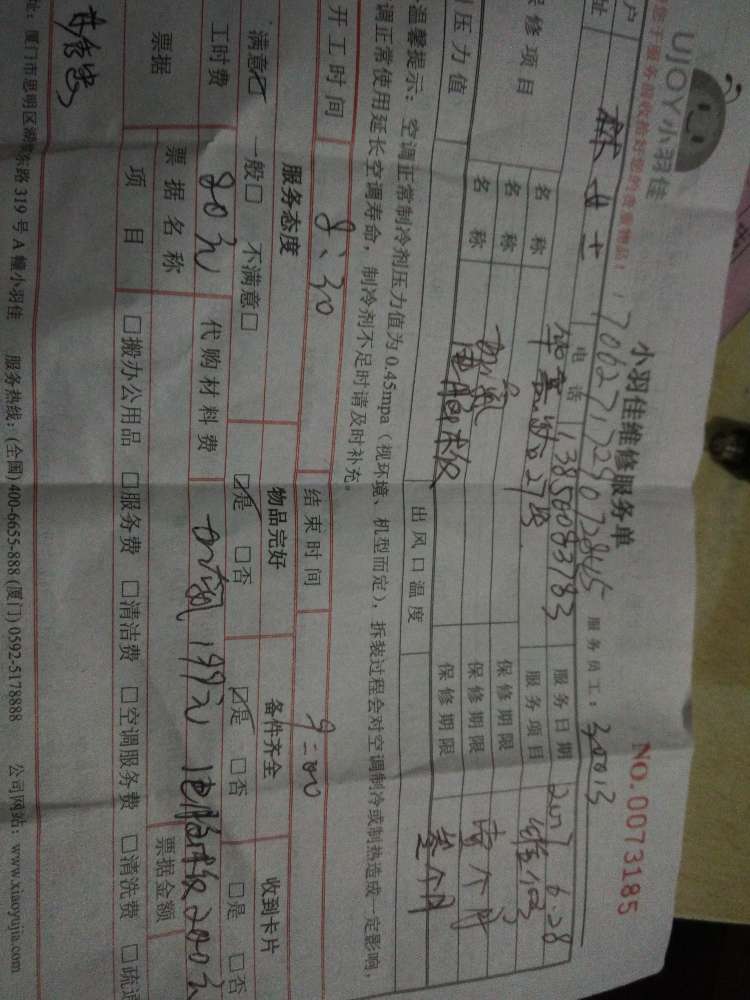 UJOY小羽佳
小羽佳维修服务单
NO.0073185
服务前收拾好您的贵重物品!
1706271729072845
服务员工: 30013
户 林女士 电话 13850083783 服务日期 2017 6.28
址 27号 服务项目 维修
保修项目 名称 保修期限
名称 加氟 保修期限 壹个月
名称 电脑板 保修期限 叁个月
压力值 出风口温度
温馨提示:空调正常制冷剂压力值为0.45mpa(视环境、机型而定),拆装过程会对空调制冷或制热造成一定影响,
调正常使用延长空调寿命,制冷剂不足时请及时补充。
开工时间 8:30 结束时间 9:00
服务态度 物品完好 备件齐全 收到卡片
满意☑ 一般□ 不满意□ ☑是 □否 ☑是 □否 □是 □否
工时费 20元 代购材料费 加氟199元 电脑板200元
票据 票据名称 票据金额
项目 □搬办公用品 □服务费 □清洁费 □空调服务费 □清洗费 □疏通
址:厦门市思明区湖滨东路319号A幢小羽佳 服务热线:(全国)400-6655-888 (厦门)0592-5178888 公司网站:www.xiaoyujia.com